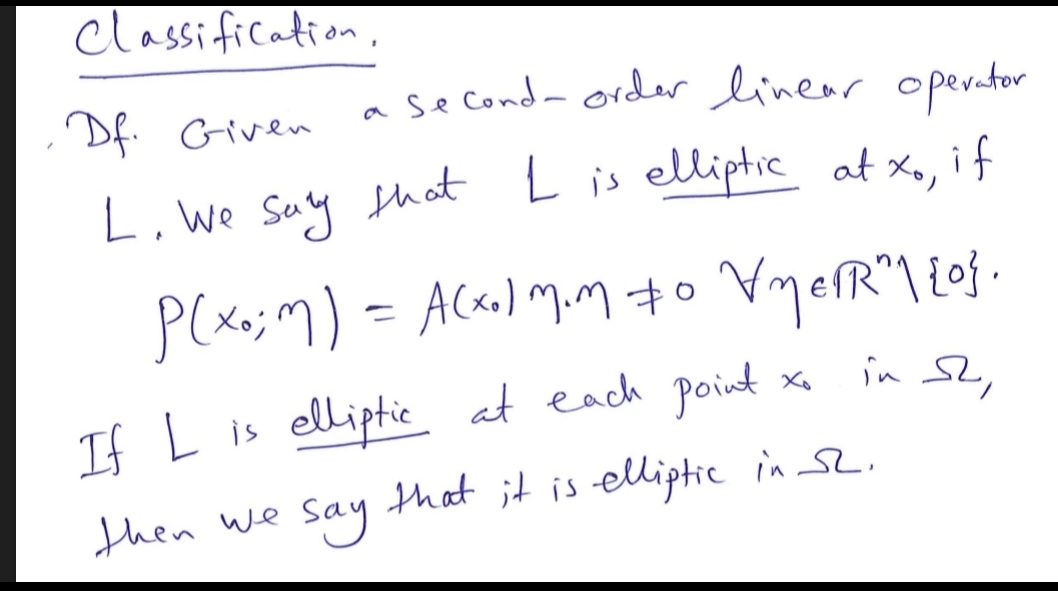 Classification.
Df. Given a second-order linear operator
L. We say that L is elliptic at x₀, if
P(x₀;η) = A(x₀)η.η ≠ 0 ∀η∈ℝⁿ\{0}.
If L is elliptic at each point x₀ in Ω,
then we say that it is elliptic in Ω.